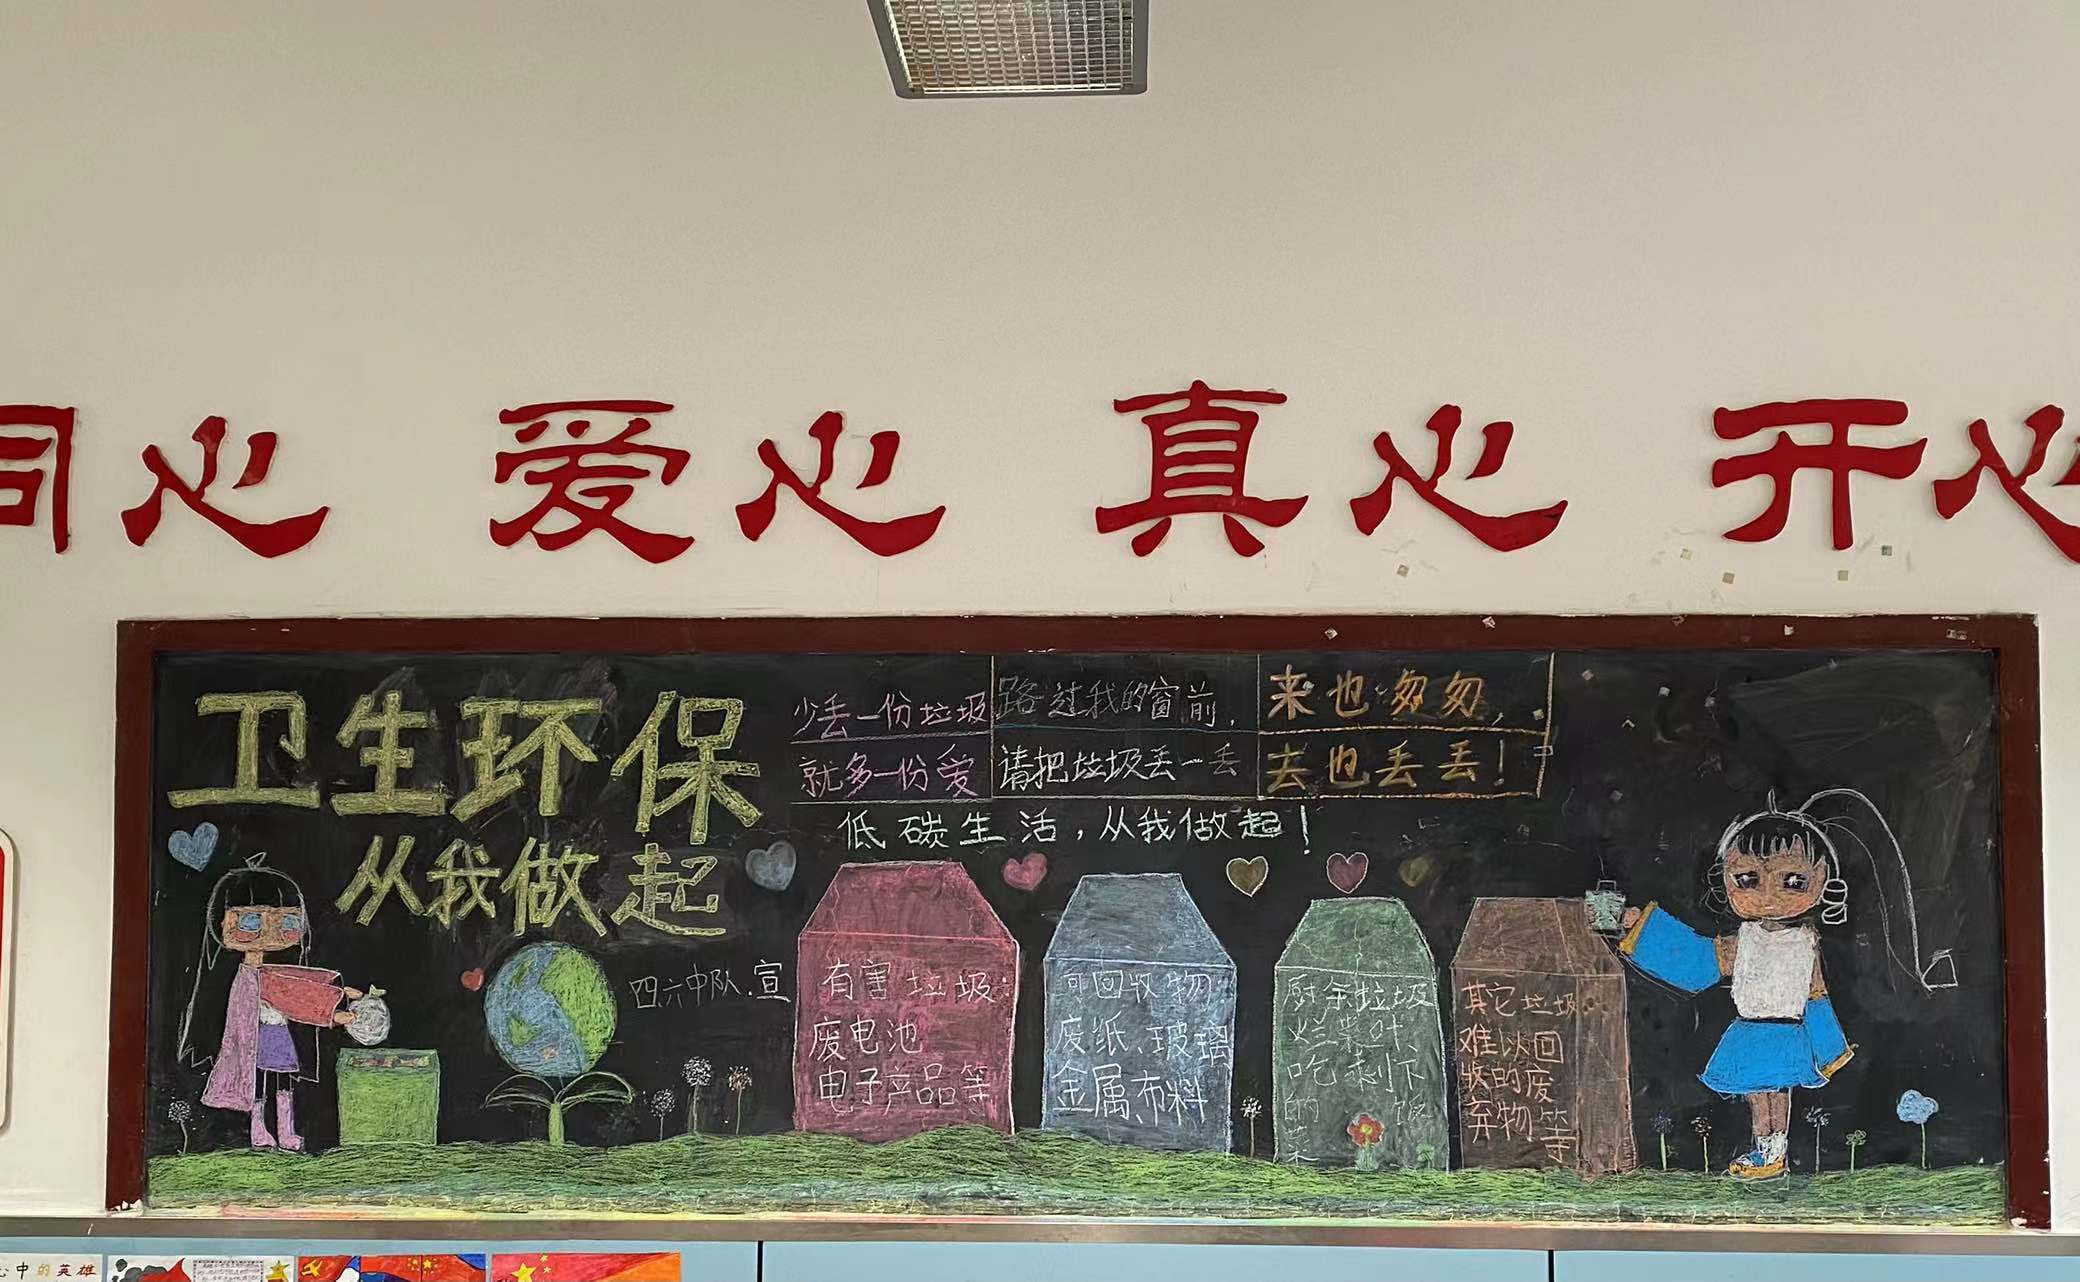 同心 爱心 真心 开心
卫生环保
从我做起
四六中队.宣
少丢一份垃圾
就多一份爱
路过我的窗前,
请把垃圾丢一丢
来也匆匆,
去也丢丢!
低碳生活,从我做起!
有害垃圾:
废电池
电子产品等
可回收物:
废纸、玻璃
金属、布料
厨余垃圾
烂菜叶、
吃剩下
的 饭
菜
其它垃圾:
难以回
收的废
弃物等
心中的英雄